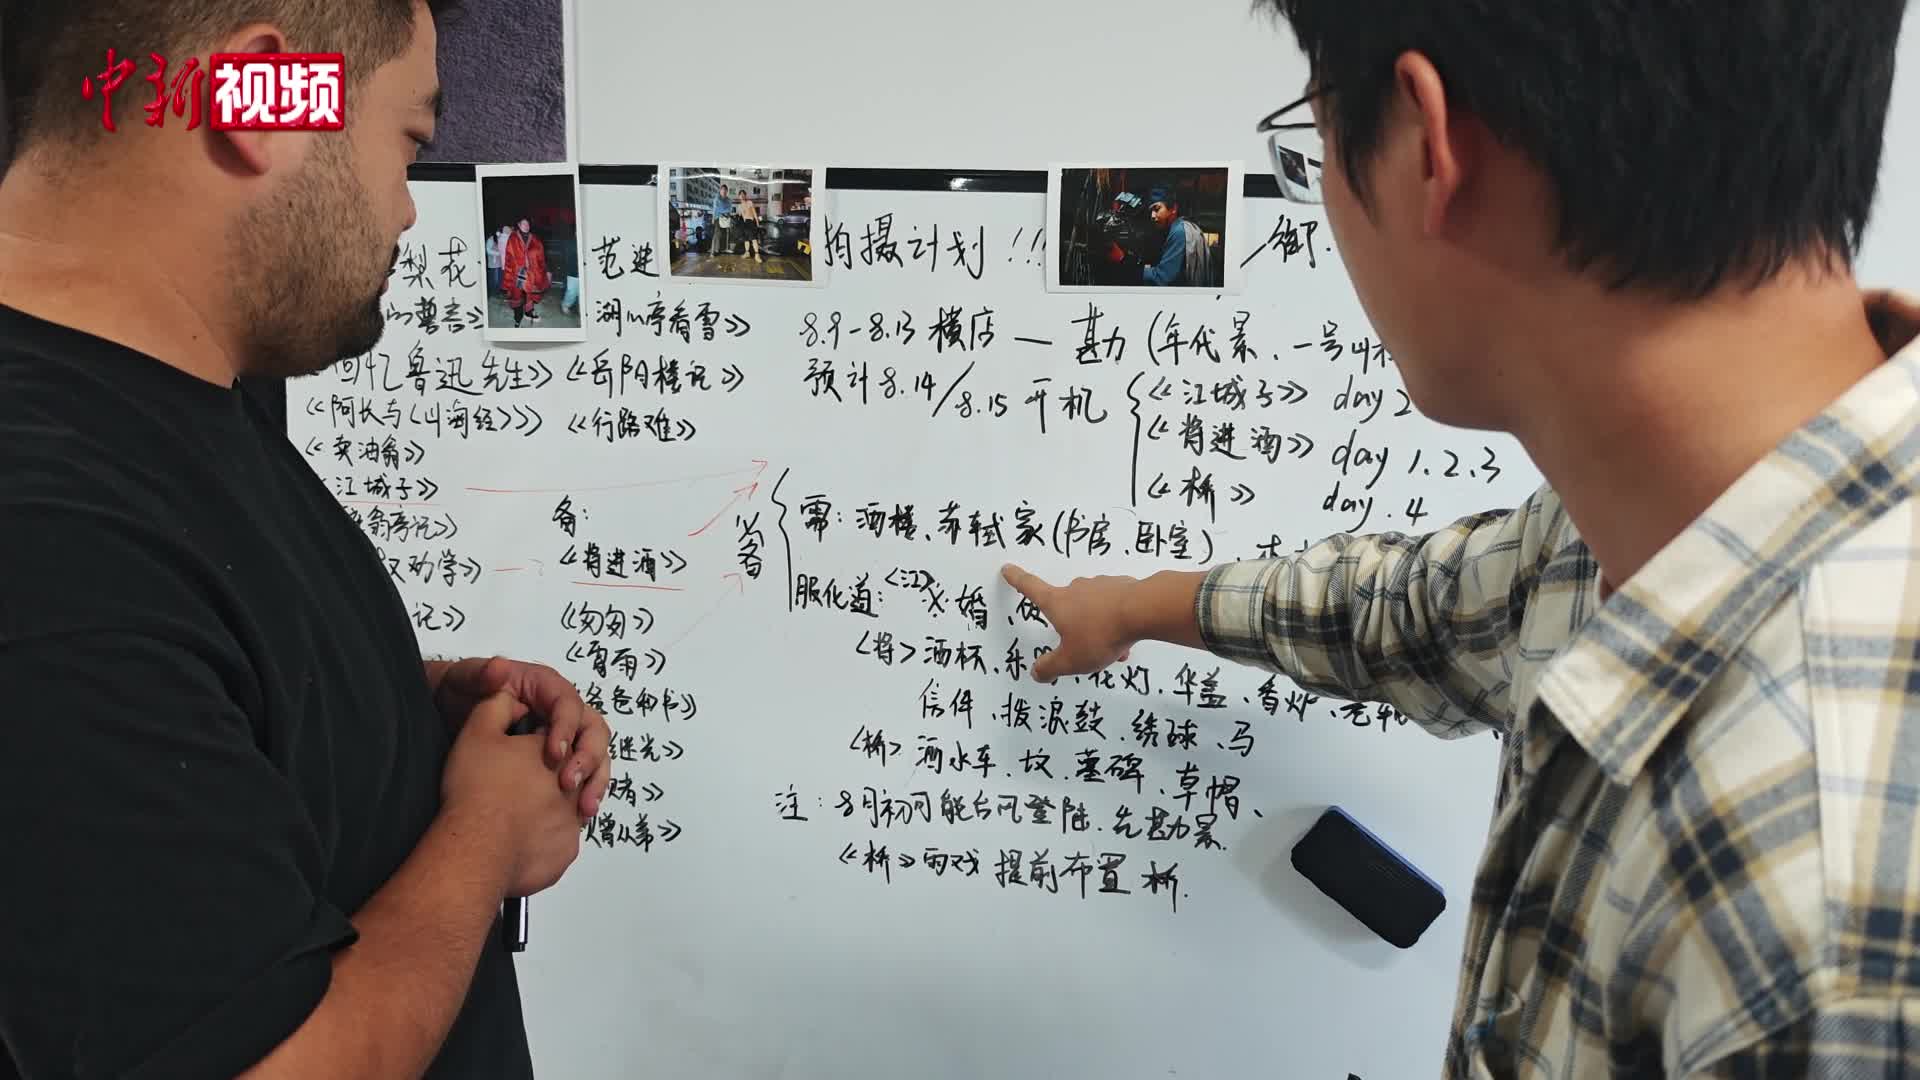 中新视频
梨花
范进
拍摄计划!!!
湖心亭看雪》
回忆鲁迅先生》
《岳阳楼记》
《阿长与《山海经》》
《行路难》
《卖油翁》
《江城子》
翁亭记》
劝学》
记》
备:
《将进酒》
《匆匆》
《雷雨》
爸爸和书》
继光》
赌》
赠从弟》
8.9-8.13 横店 — 勘(年代景、一号
预计8.14/8.15 开机
《江城子》 day 2
《将进酒》 day 1.2.3
《桥》 day.4
必备
需:酒楼、苏轼家(书房、卧室)、
服化道:<江>
婚、
<将>酒杯、乐
花灯、华盖、香炉、
信件、拨浪鼓、绣球、马
<桥>洒水车、坟、墓碑、草帽、
注:8月初可能台风登陆.先勘景.
《桥》雨戏 提前布置 桥.